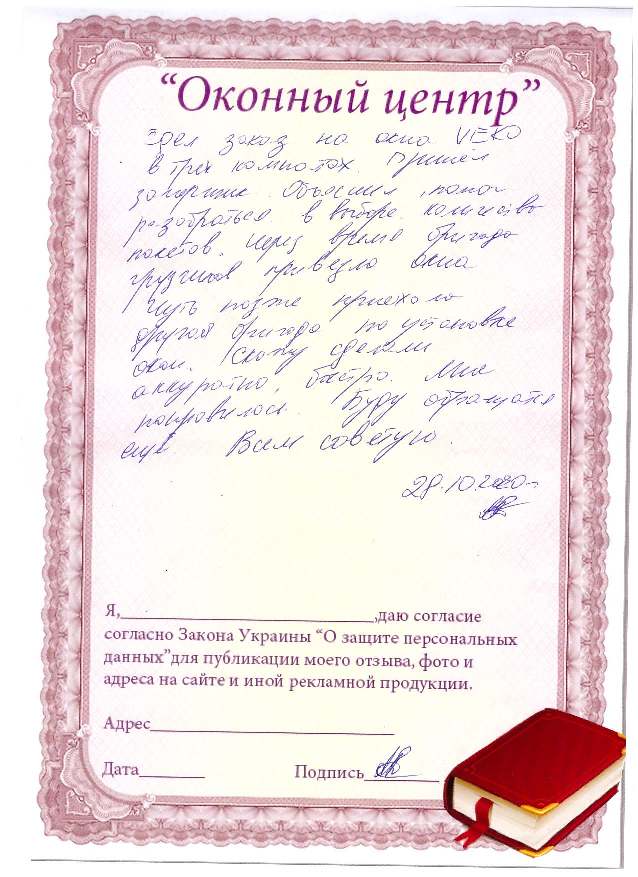 “Оконный центр”
заказ на окна VEKO
в трех комнатах. Пришел
замерщик. Объяснил, помог
разобраться в выборе количества
пакетов. Через время бригада
грузчиков привезла окна
Чуть позже приехала
другая бригада по установке
окон. Скажу сделали
аккуратно, быстро. Мне
понравилось. Буду обращатся
ещё. Всем советую.
28.10.2020г.
Я,____________________________,даю согласие
согласно Закона Украины “О защите персональных
данных”для публикации моего отзыва, фото и
адреса на сайте и иной рекламной продукции.
Адрес___________________________
Дата_______ Подпись________